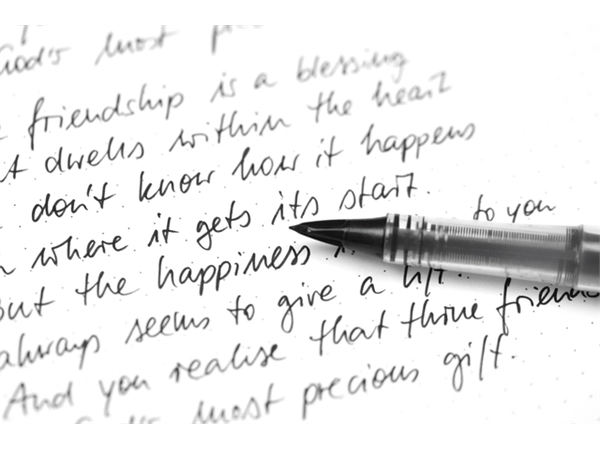 God's most
friendship is a blessing
dwells within the heart
don't know how it happens
where it gets its start.
But the happiness to you
always seems to give a lift.
And you realise that thine friend
God's most precious gift.